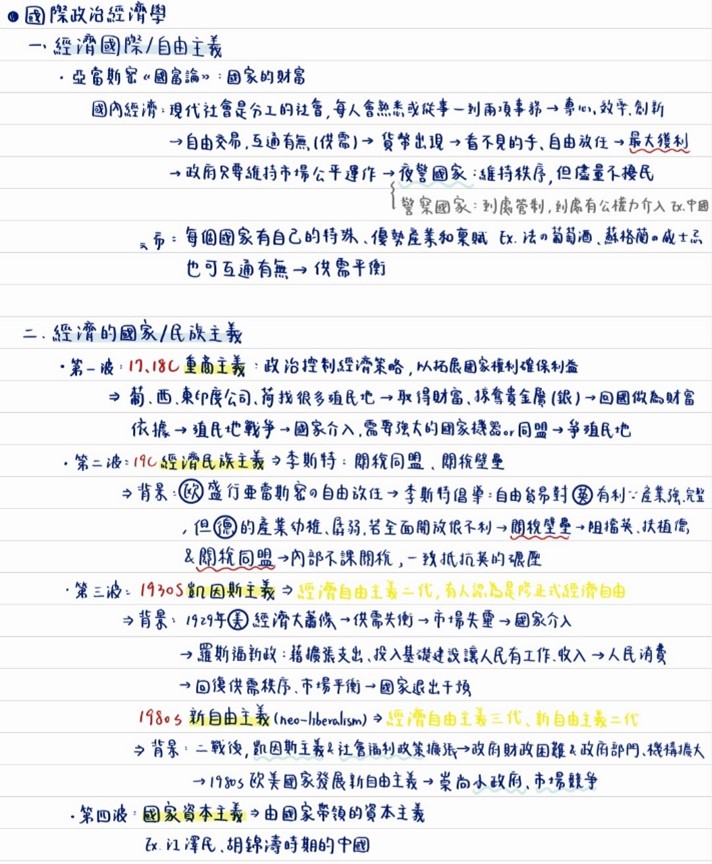 國際政治經濟學
一、經濟國際/自由主義
・亞當斯密《國富論》：國家的財富
國內經濟：現代社會是分工的社會,每人會熟悉或從事一到兩項事務→專心,效率,創新
→自由交易,互通有無,(供需)→貨幣出現→看不見的手、自由放任→最大獲利
→政府只要維持市場公平運作→夜警國家：維持秩序,但儘量不擾民
警察國家：到處管制,到處有公權力介入 Ex.中國
市：每個國家有自己的特殊、優勢產業和稟賦 Ex. 法の葡萄酒、蘇格蘭の威士忌
也可互通有無→供需平衡
二.經濟的國家/民族主義
・第一波：17,18C 重商主義：政治控制經濟策略,以拓展國家權利確保利益
⇒葡、西、東印度公司、荷找很多殖民地→取得財富、掠奪貴金屬(銀)→回國做為財富
依據→殖民地戰爭→國家介入,需要強大的國家機器or同盟→爭殖民地
・第二波：19C 經濟民族主義⇒李斯特：關稅同盟、關稅壁壘
⇒背景：歐盛行亞當斯密の自由放任→李斯特倡導：自由貿易對英有利∵產業強、完整
,但德的產業幼稚、孱弱,若全面開放很不利→關稅壁壘→阻擋英、扶植德,
&關稅同盟→內部不課關稅,一致抵抗英的碾壓
・第三波：1930s 凱因斯主義⇒經濟自由主義二代,有人認為是修正式經濟自由
⇒背景：1929年美經濟大蕭條→供需失衡→市場失靈→國家介入
→羅斯福新政：藉擴張支出、投入基礎建設讓人民有工作.收入→人民消費
→回復供需秩序、市場平衡→國家退出干預
1980s 新自由主義(neo-liberalism)⇒經濟自由主義三代、新自由主義二代
⇒背景：二戰後,凱因斯主義&社會福利政策擴張→政府財政困難&政府部門、機構擴大
→1980s 歐美國家發展新自由主義→崇尚小政府、市場競爭
・第四波：國家資本主義⇒由國家帶領的資本主義
Ex. 江澤民、胡錦濤時期的中國